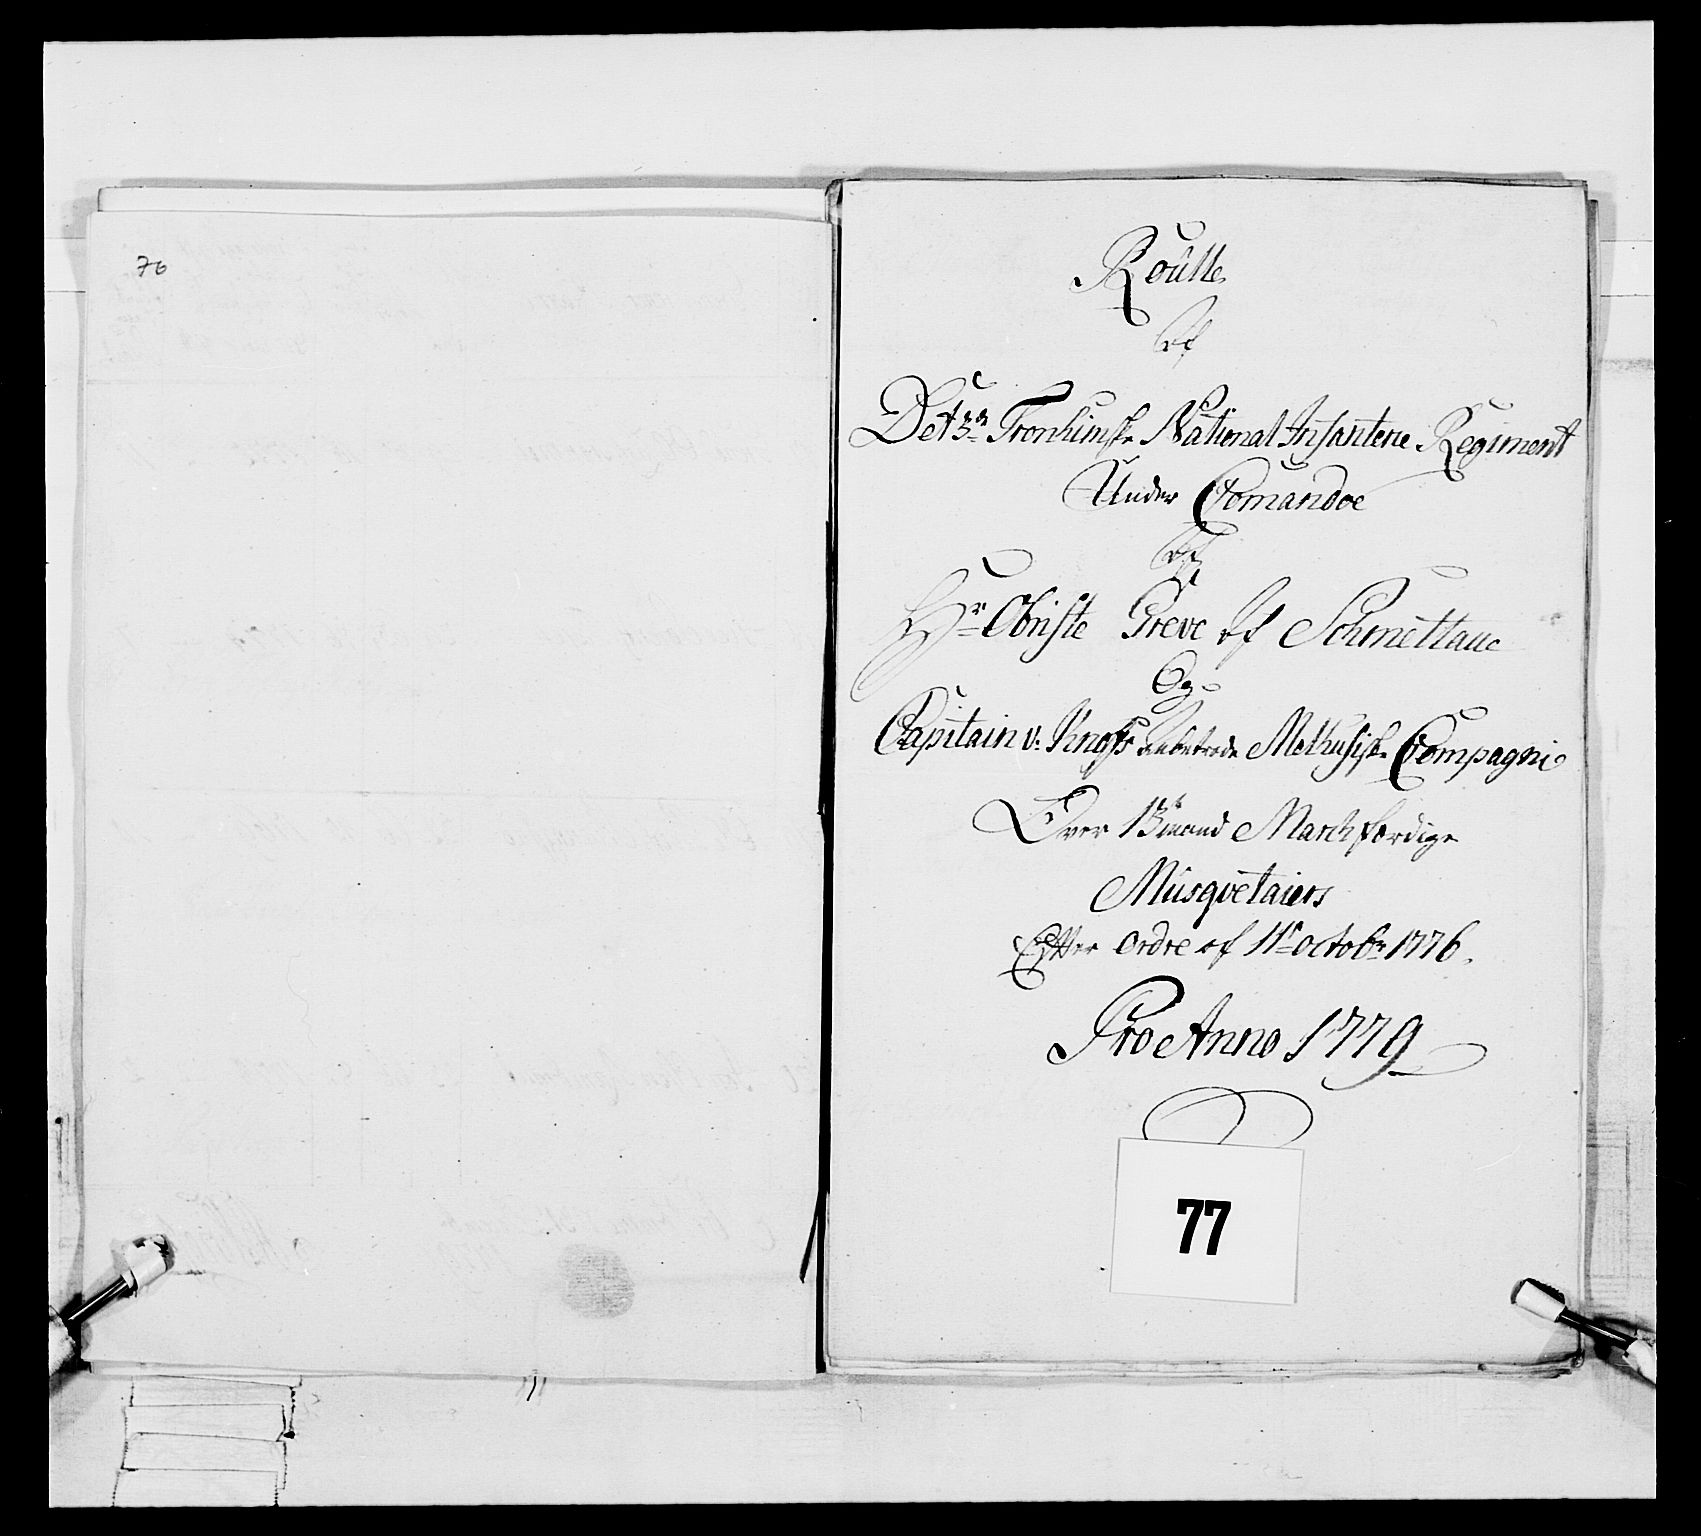 76
Roulle
Af
Det 3de Tronhimske National Infanterie Regiment
Under Comandoe
Af
Hr Obriste Greve Af Schmettaue
Og
Capitain v: Knoff anbetrode Melhusiske Compagni
Over 13 mand Marchfærdige
Musqvetaiers
Efter Ordre af 11te Octobr 1776.
Pro Anno 1779
77